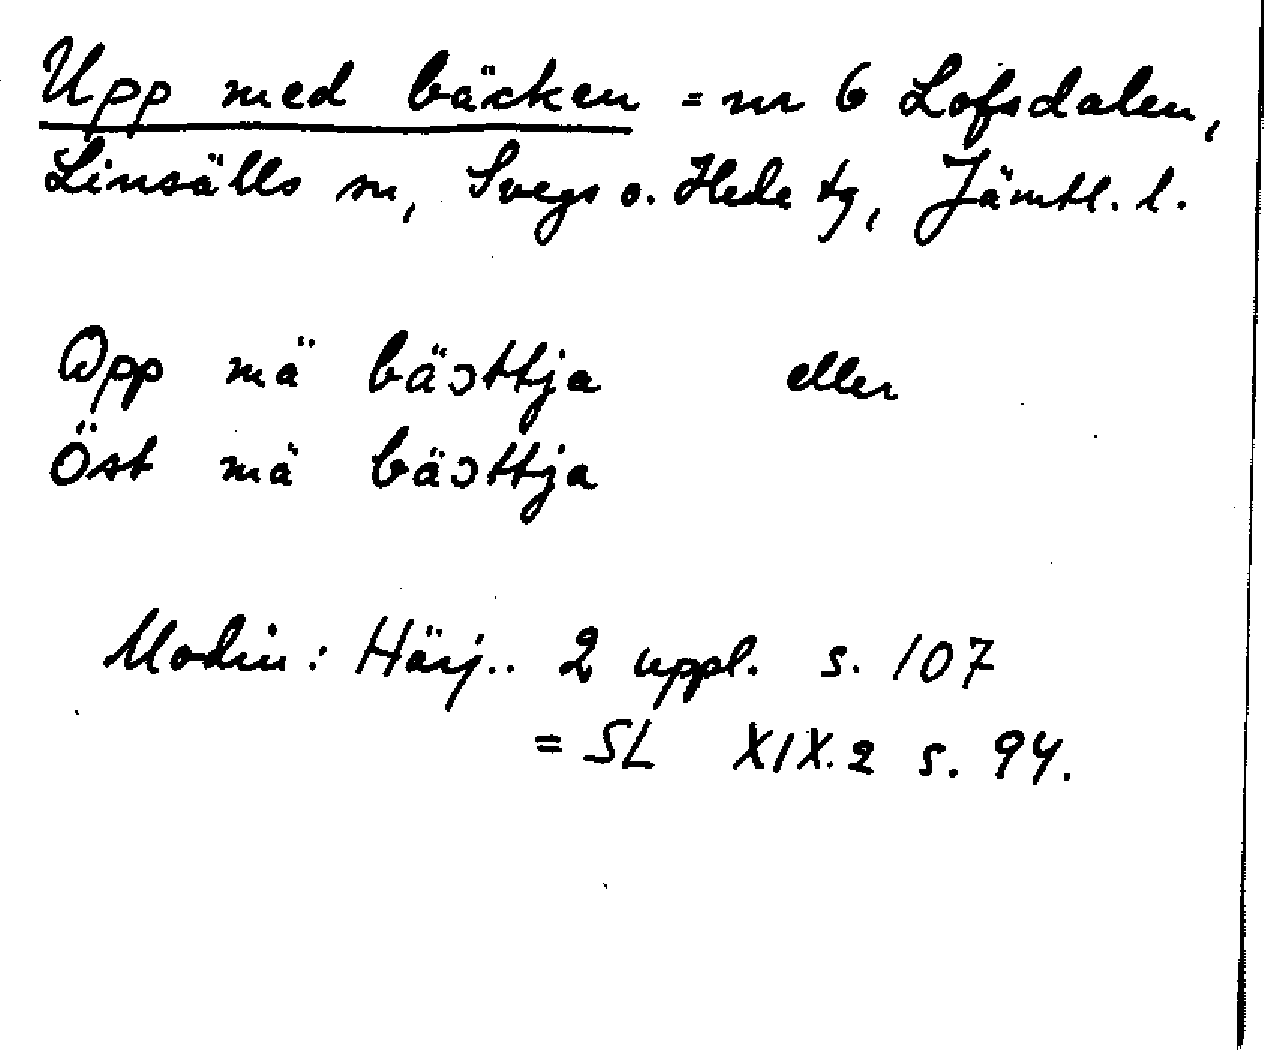 Upp med bäcken = nr 6 Lofsdalen,
Linsälls sn, Svegs o. Hede tg, Jämtl. l.
Opp mä bäɔttja eller
Öst mä bäɔttja
Modin: Härj.. 2 uppl. s. 107
= SL XIX.2 s. 94.